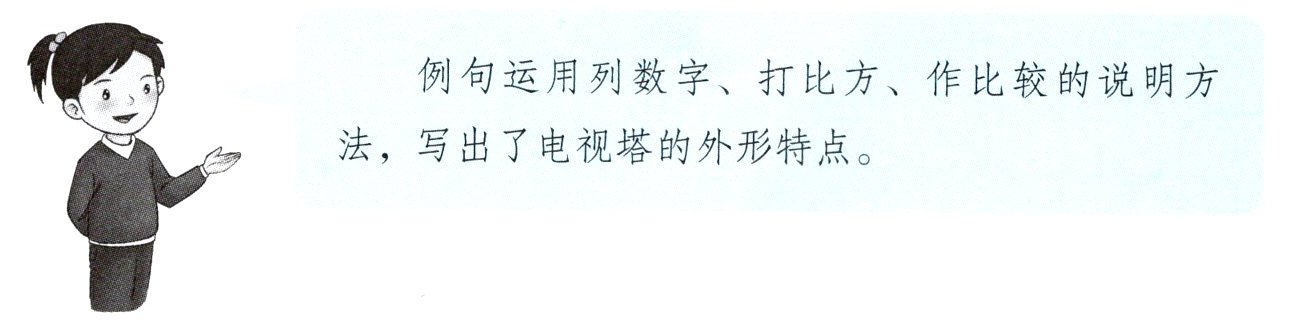 例句运用列数字、打比方、作比较的说明方
法，写出了电视塔的外形特点。